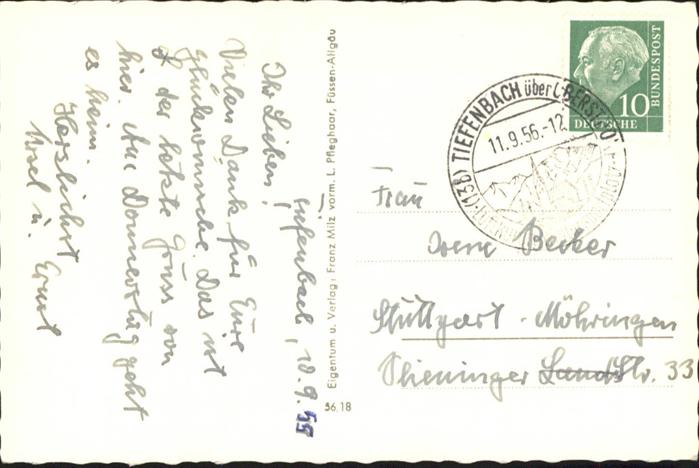 Tiefenbach, 10.9.55
Ihr Lieben,
Vielen Dank für Eure
Glückwünsche. Das ist
der letzte Gruss von
hier. Am Donnerstag geht
es heim.
Herzlichst
u. Ernst
Eigentum u. Verlag: Franz Milz vorm. L. Pfleghaar, Füssen-Allgäu
56.18
10
DEUTSCHE
BUNDESPOST
(13b) TIEFENBACH über OBERSTDORF
11.9.56.-12
Frau
Becker
Stuttgart-Möhringen
Plieninger Landstr. 33